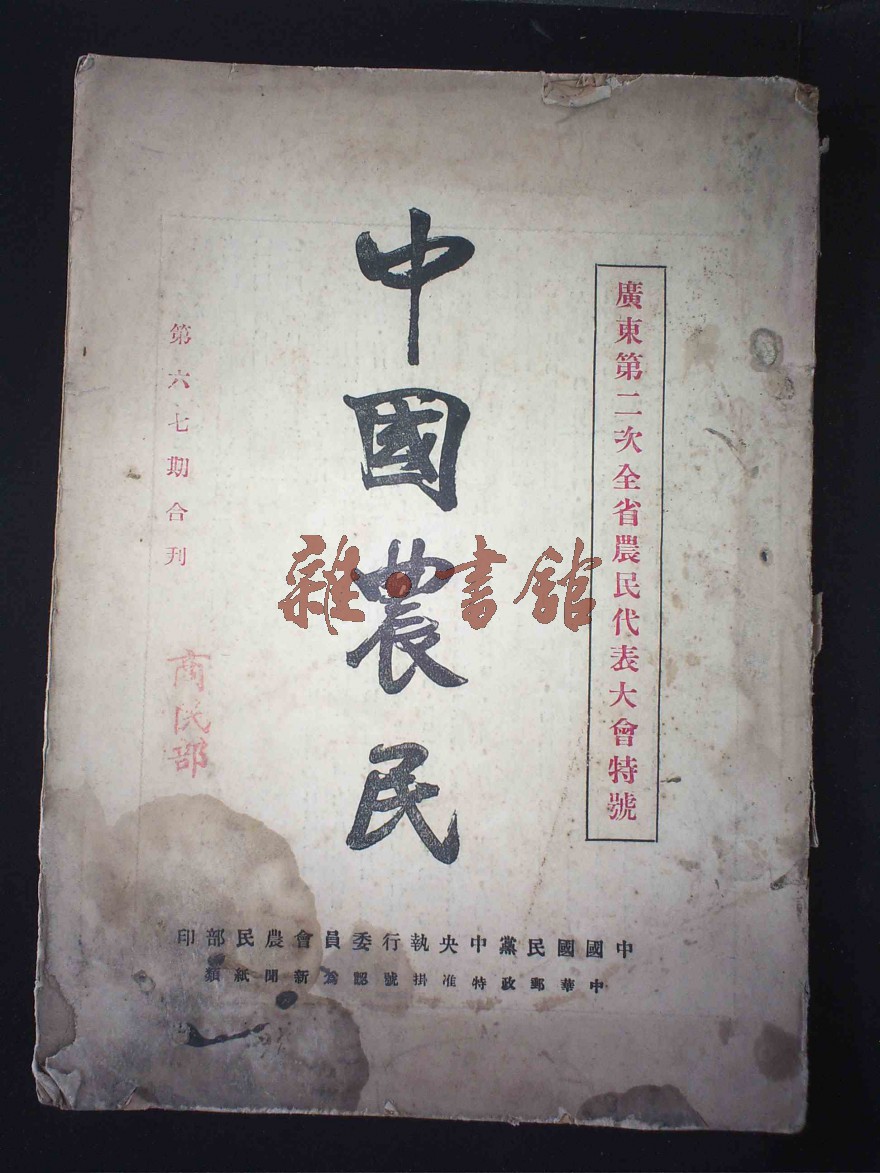 廣東第二次全省農民代表大會特號
中國農民
第六七期合刊
商民部
雜·書館
中國國民黨中央執行委員會農民部印
中華郵政特准掛號認為新聞紙類